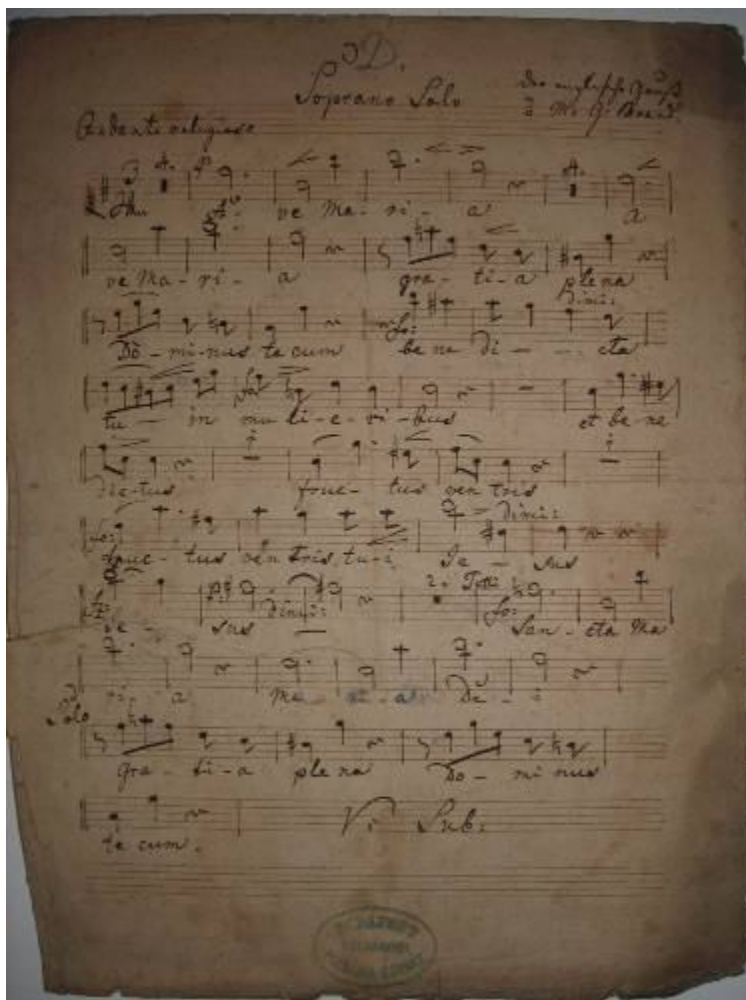 D.
Soprano Solo
Der englische Gruß
v. M. J. Brand.
Andante religioso
A- ve Ma- ri- a A
ve Ma- ri- a gra- ti- a plena
dimi:
Do- mi-nus te cum be ne di- cta
tu- in mu li-e-ri-bus et be-ne
dic-tus fruc- tus ven tris
dimi:
fruc- tus ven tris tu-i Je- sus
2. Tutti
fo:
Je- sus dimi: San- cta Ma
ri- a Ma- ri- a De- i
Solo
gra- ti-a ple na Do- mi nus
te cum.
Vi Sub: